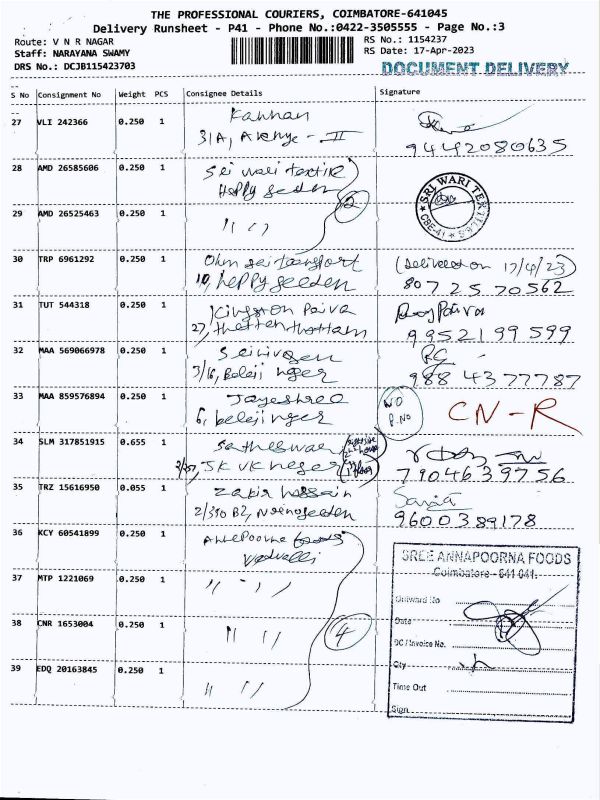 THE PROFESSIONAL COURIERS, COIMBATORE-641045
Delivery Runsheet - P41 - Phone No.:0422-3505555 - Page No.:3
Route: V N R NAGAR
Staff: NARAYANA SWAMY
DRS No.: DCJB115423703
RS No.: 1154237
RS Date: 17-Apr-2023
DOCUMENT DELIVERY
S No Consignment No Weight PCS Consignee Details Signature
27 VLI 242366 0.250 1 Kannan
31A, Avenye - II
9442080635
28 AMD 26585606 0.250 1 Sri wari textile
Heppy geeden
2
SRI WARI TEXTILES
CBE-41
29 AMD 26525463 0.250 1 " "
30 TRP 6961292 0.250 1 Ohm sei transport (Delivered on 17/4/23)
10, heppy geeden 80725 70562
31 TUT 544318 0.250 1 Kingston Paiva
27, thottam 99521 99 599
32 MAA 569066978 0.250 1 Seinivasen
3/16, Beleji nger 988 4377787
33 MAA 859576894 0.250 1 Jayeshree WD P.NO CN-R
6, belejinger
34 SLM 317851915 0.655 1 Satheswaen
JK VK neger 7904639756
35 TRZ 15616950 0.055 1 Zakir hossain
2/350 B2, geeden 9600389178
36 KCY 60541899 0.250 1 Annepoorne foods
37 MTP 1221069 0.250 1 " "
38 CNR 1653004 0.250 1 " "
4
39 EDQ 20163845 0.250 1 " "
SREE ANNAPOORNA FOODS
Coimbatore - 641 041.
Outward No
Date
DC / Invoice No.
Qty
Time Out
Sign